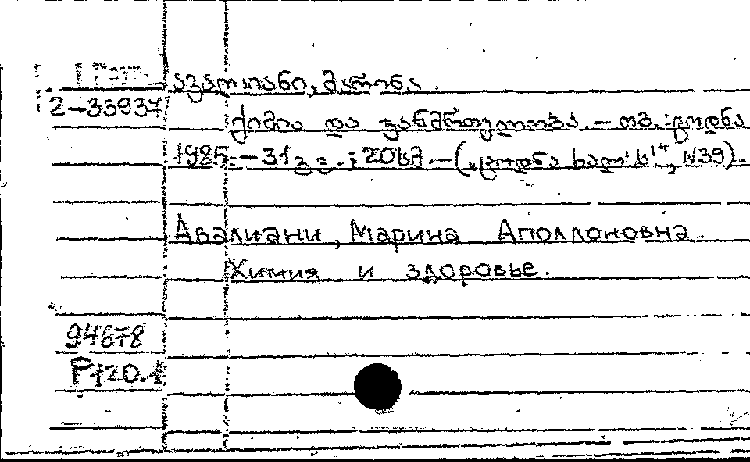 ავალიანი, მარინა.
2-33937
ქიმია და ჯანმრთელობა. – თბ.: ცოდნა
1985. – 31გვ.; 20სმ. – („ცოდნა ხალხს“, №39).
Авалиани, Марина Аполлоновна.
Химия и здоровье.
94678